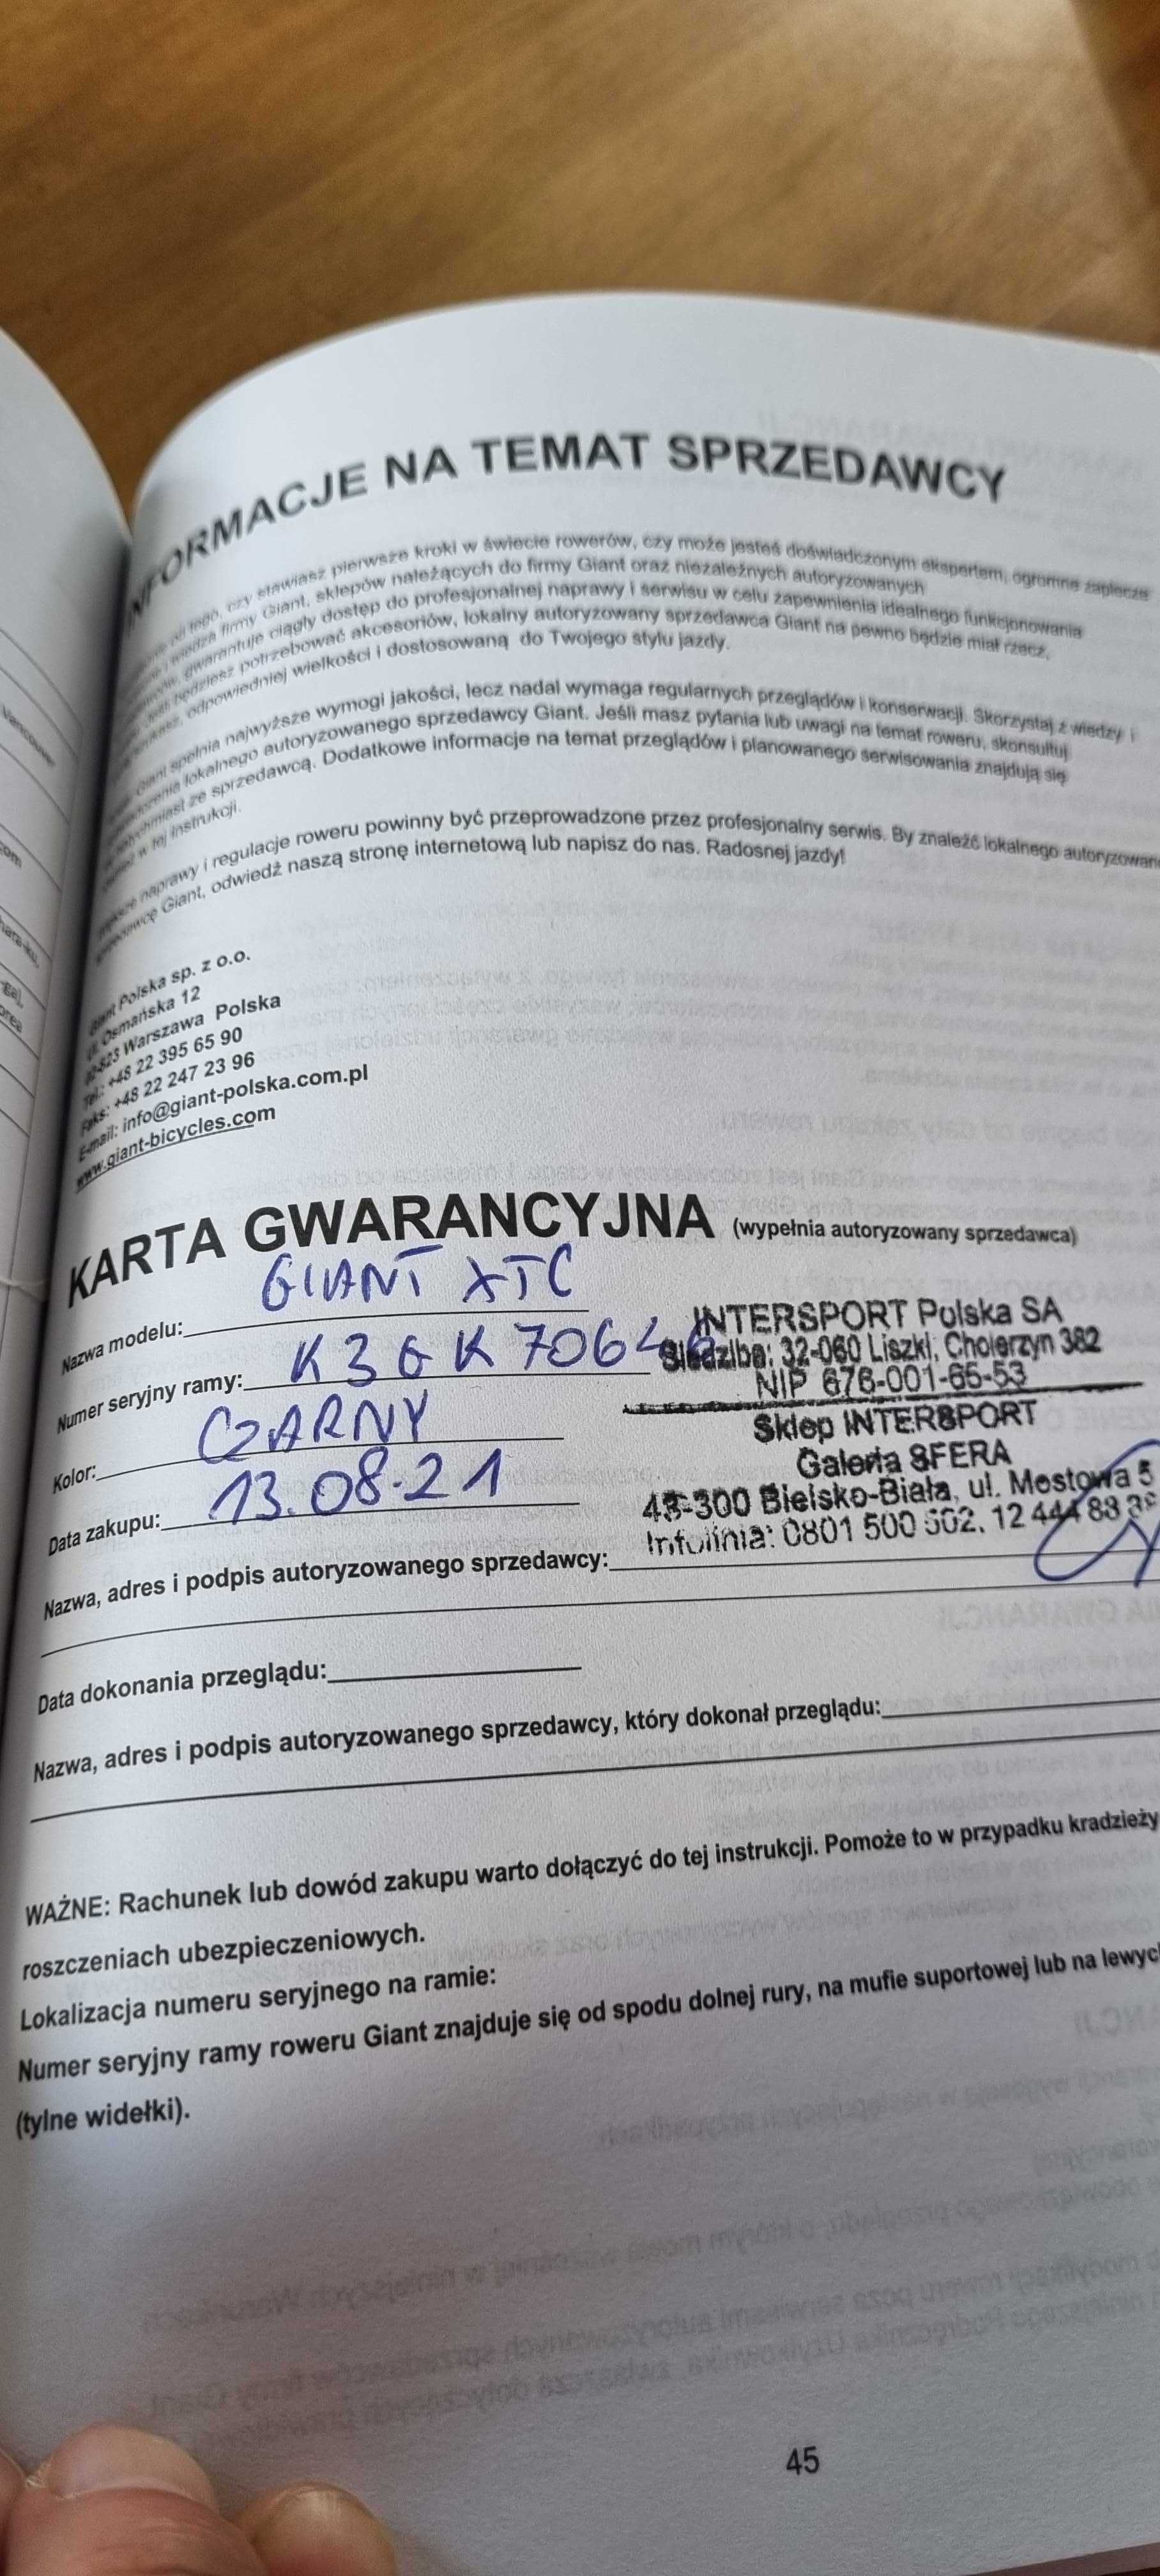 INFORMACJE NA TEMAT SPRZEDAWCY
od tego, czy stawiasz pierwsze kroki w świecie rowerów, czy może jesteś doświadczonym ekspertem, ogromne zaplecze
i wiedza firmy Giant, sklepów należących do firmy Giant oraz niezależnych autoryzowanych
gwarantuje ciągły dostęp do profesjonalnej naprawy i serwisu w celu zapewnienia idealnego funkcjonowania
będziesz potrzebować akcesoriów, lokalny autoryzowany sprzedawca Giant na pewno będzie miał rzecz,
odpowiedniej wielkości i dostosowaną do Twojego stylu jazdy.
Giant spełnia najwyższe wymogi jakości, lecz nadal wymaga regularnych przeglądów i konserwacji. Skorzystaj z wiedzy i
lokalnego autoryzowanego sprzedawcy Giant. Jeśli masz pytania lub uwagi na temat roweru, skonsultuj
ze sprzedawcą. Dodatkowe informacje na temat przeglądów i planowanego serwisowania znajdują się
w tej instrukcji.
naprawy i regulacje roweru powinny być przeprowadzone przez profesjonalny serwis. By znaleźć lokalnego
Giant, odwiedź naszą stronę internetową lub napisz do nas. Radosnej jazdy!
Giant Polska sp. z o.o.
ul. Osmańska 12
Warszawa Polska
Tel.: +48 22 395 65 90
Faks: +48 22 247 23 96
E-mail: info@giant-polska.com.pl
www.giant-bicycles.com
KARTA GWARANCYJNA (wypełnia autoryzowany sprzedawca)
Nazwa modelu: GIANT XTC
INTERSPORT Polska SA
Siedziba: 32-060 Liszki, Cholerzyn 382
Numer seryjny ramy: K3GK70646
NIP 676-001-65-53
Sklep INTERSPORT
Kolor: CZARNY
Galeria SFERA
Data zakupu: 13.08.21
43-300 Bielsko-Biała, ul. Mostowa 5
Infolinia: 0801 500 502, 12 444
Nazwa, adres i podpis autoryzowanego sprzedawcy:
Data dokonania przeglądu:
Nazwa, adres i podpis autoryzowanego sprzedawcy, który dokonał przeglądu:
WAŻNE: Rachunek lub dowód zakupu warto dołączyć do tej instrukcji. Pomoże to w przypadku kradzieży
roszczeniach ubezpieczeniowych.
Lokalizacja numeru seryjnego na ramie:
Numer seryjny ramy roweru Giant znajduje się od spodu dolnej rury, na mufie suportowej lub na lewyc
(tylne widełki).
45